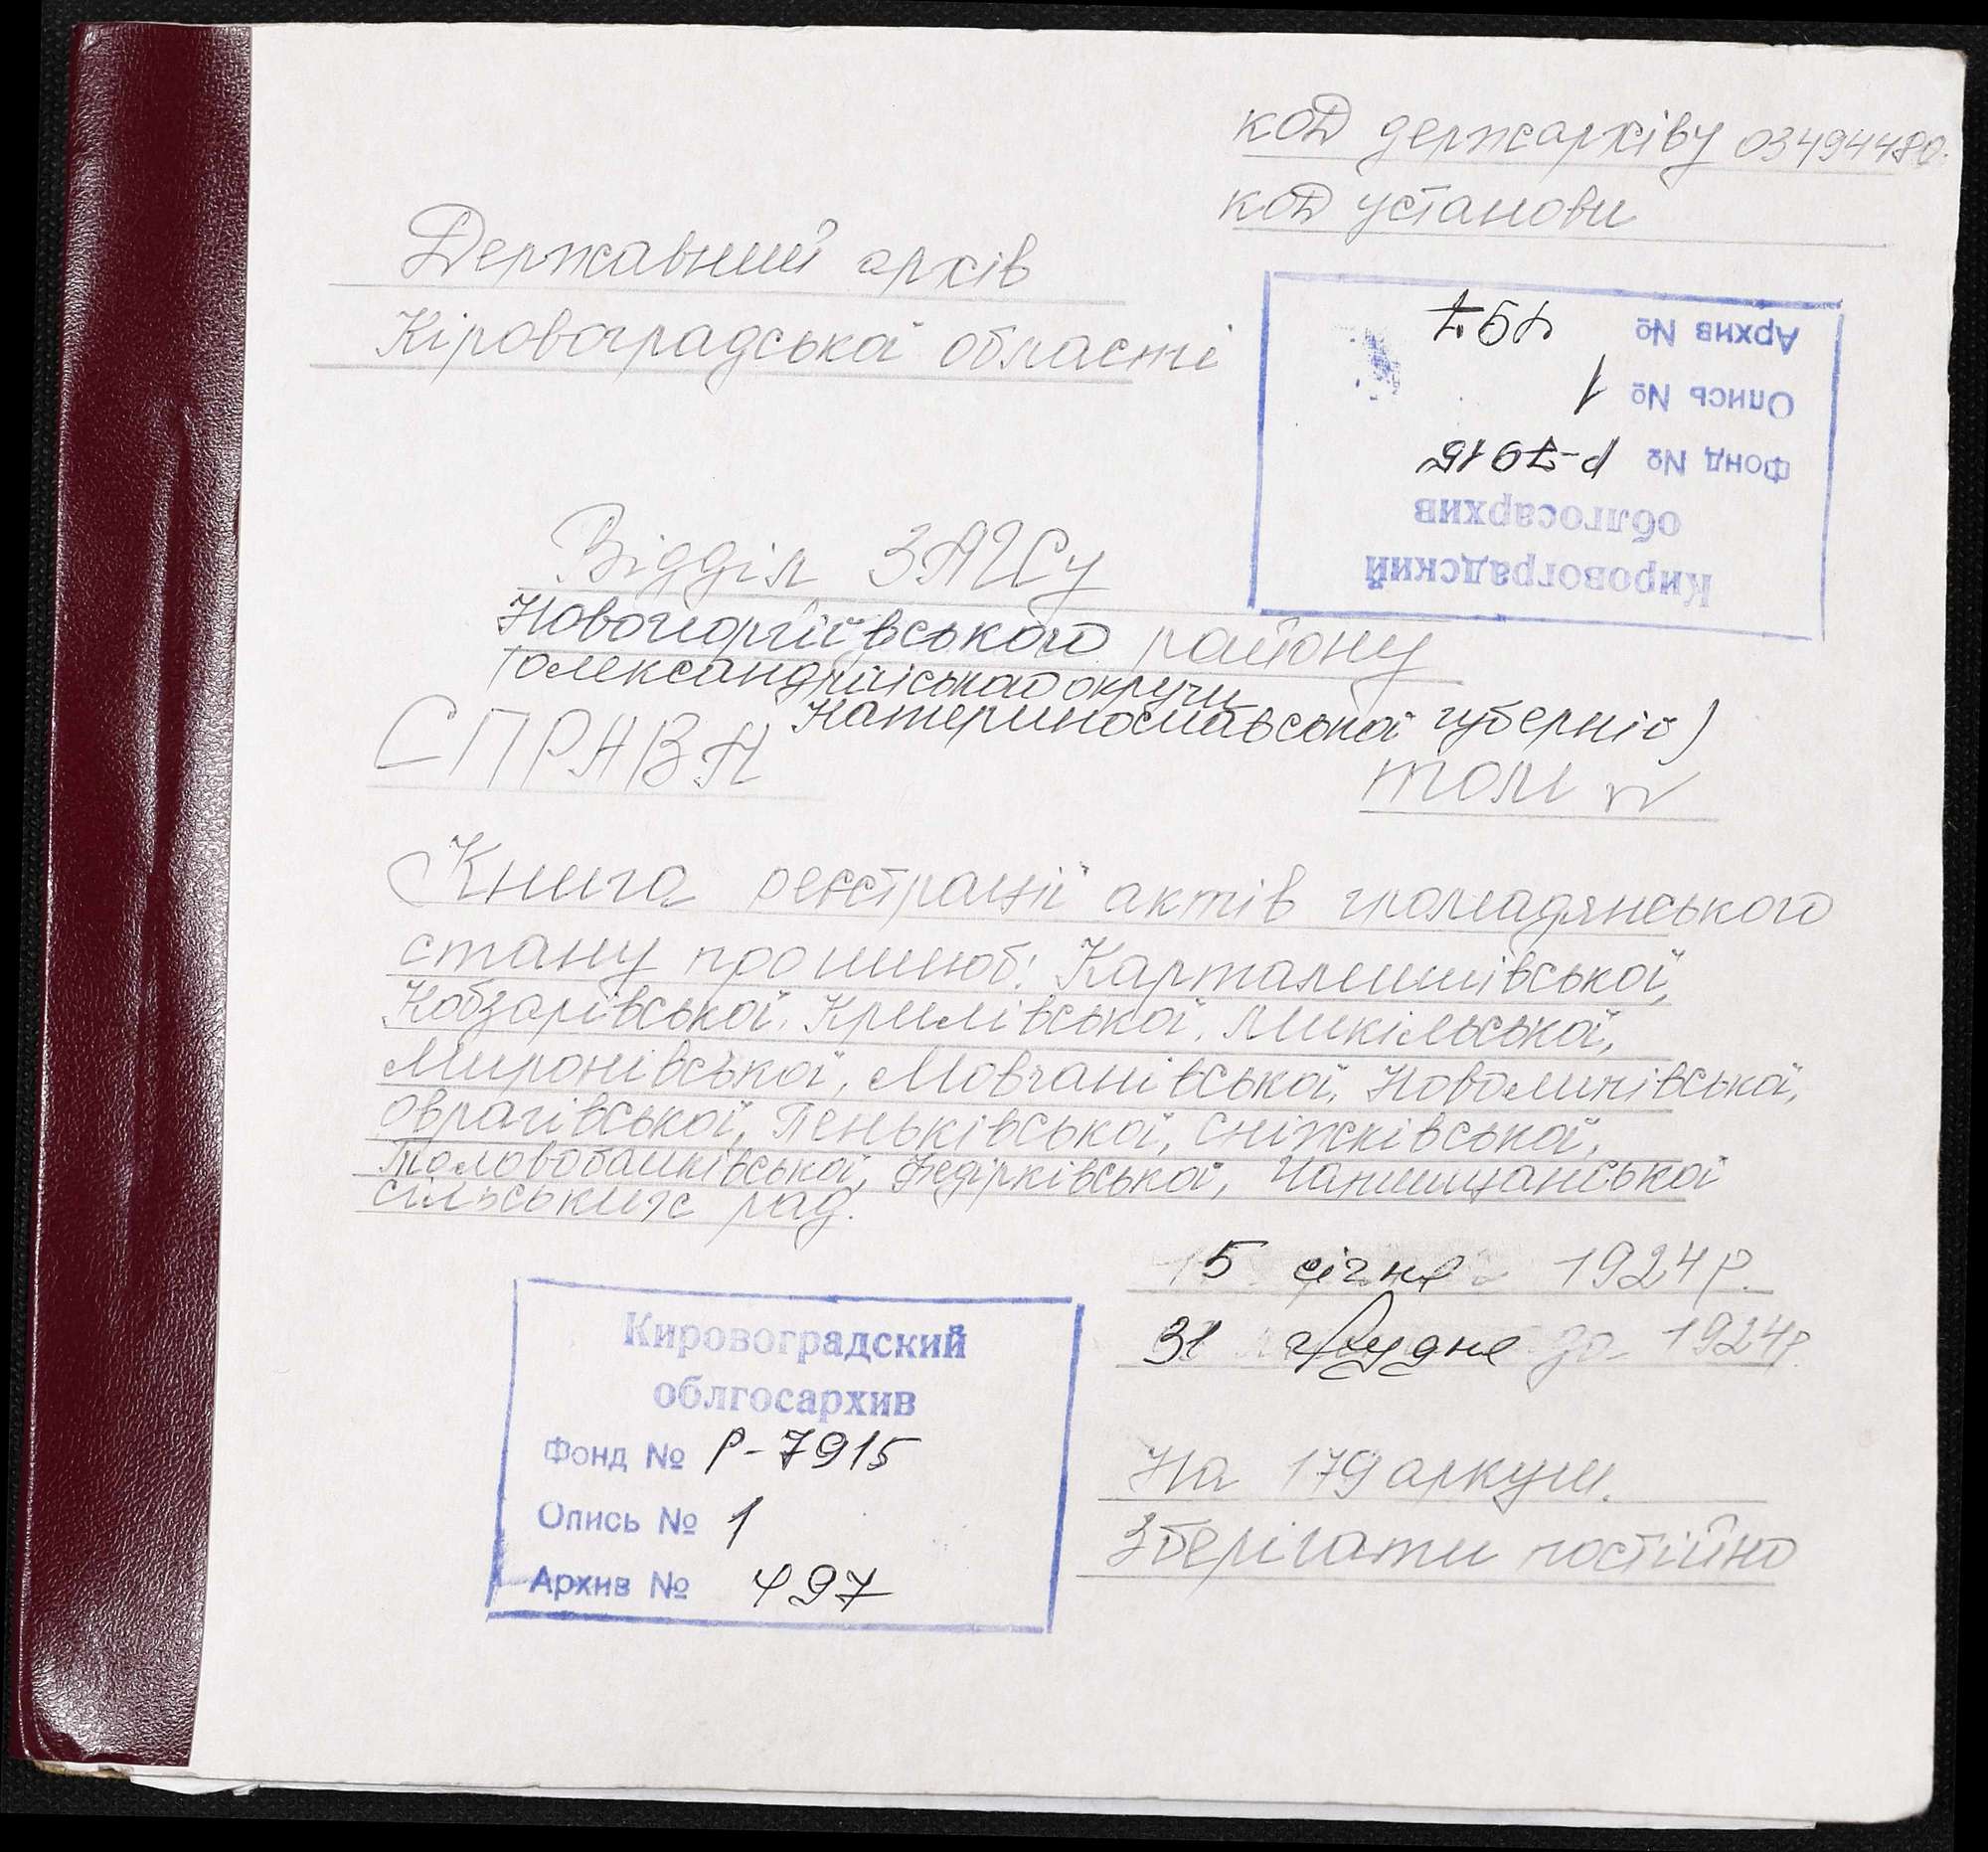 код держархіву 03494480.
код установи
Державний архів
Кіровоградської області
Архив № 497
Опись № 1
Фонд № Р-7915
облгосархив
Кировоградский
Відділ ЗАГСу
Новогеоргіївського району
(Олександрійської округи
Катеринославської губернії)
СПРАВА
том
Книга реєстрації актів громадянського
стану про шлюб: Карталишівської,
Кобзарівської, Крилівської, Микільської,
Миронівської, Мовчанівської, Новолипівської,
Оврагівської, Пеньківської, Сніжківської,
Федірківської,
сільських рад.
15 січня 1924р.
31 грудня 1924р.
Кировоградский
облгосархив
Фонд № Р-7915
Опись № 1
Архив № 497
На 179 аркуш.
Зберігати постійно